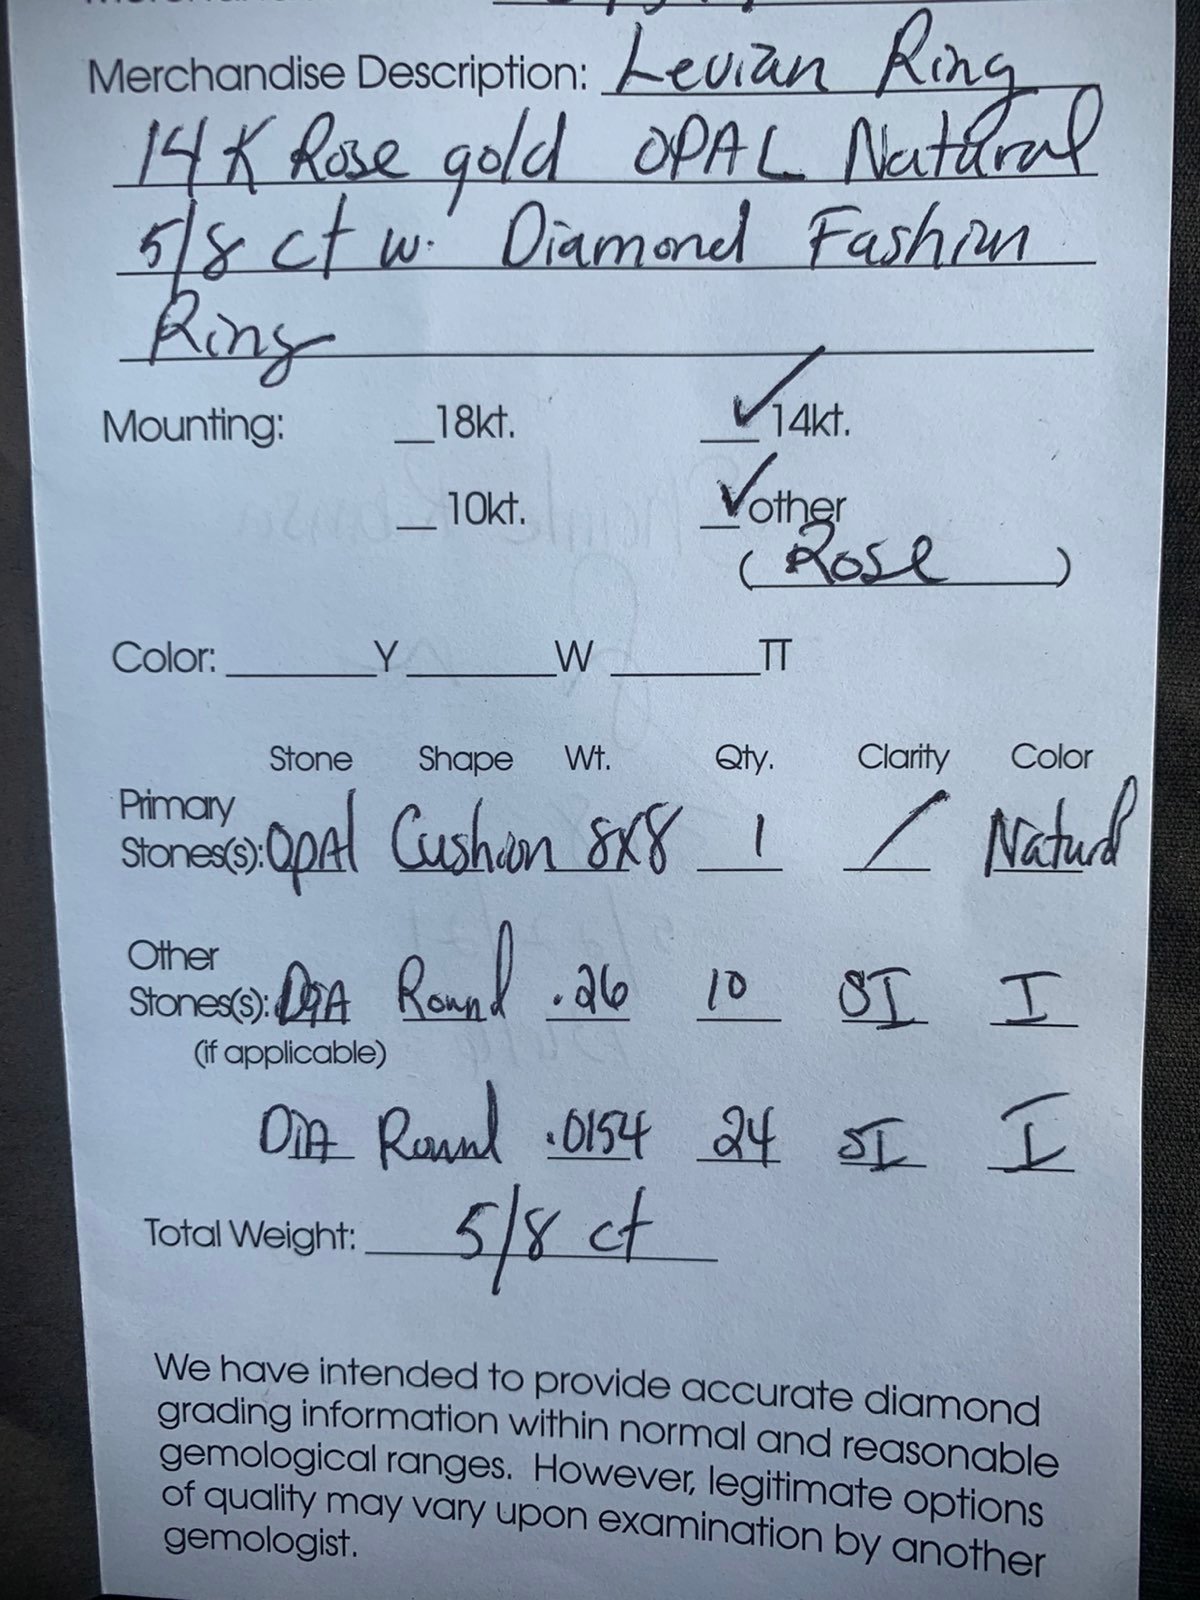 Merchandise Description: Levian Ring
14K Rose gold OPAL Natural
5/8 ct w. Diamond Fashion
Ring
Mounting: __18kt. ✓14kt.
__10kt. ✓other
(Rose)
Color: ______Y______W______TT
Stone Shape Wt. Qty. Clarity Color
Primary
Stones(s): OpAl Cushion 8x8 1 / Natural
Other
Stones(s): DIA Round .26 10 SI I
(if applicable)
DiA Round .0154 24 SI I
Total Weight: 5/8 ct
We have intended to provide accurate diamond
grading information within normal and reasonable
gemological ranges. However, legitimate options
of quality may vary upon examination by another
gemologist.